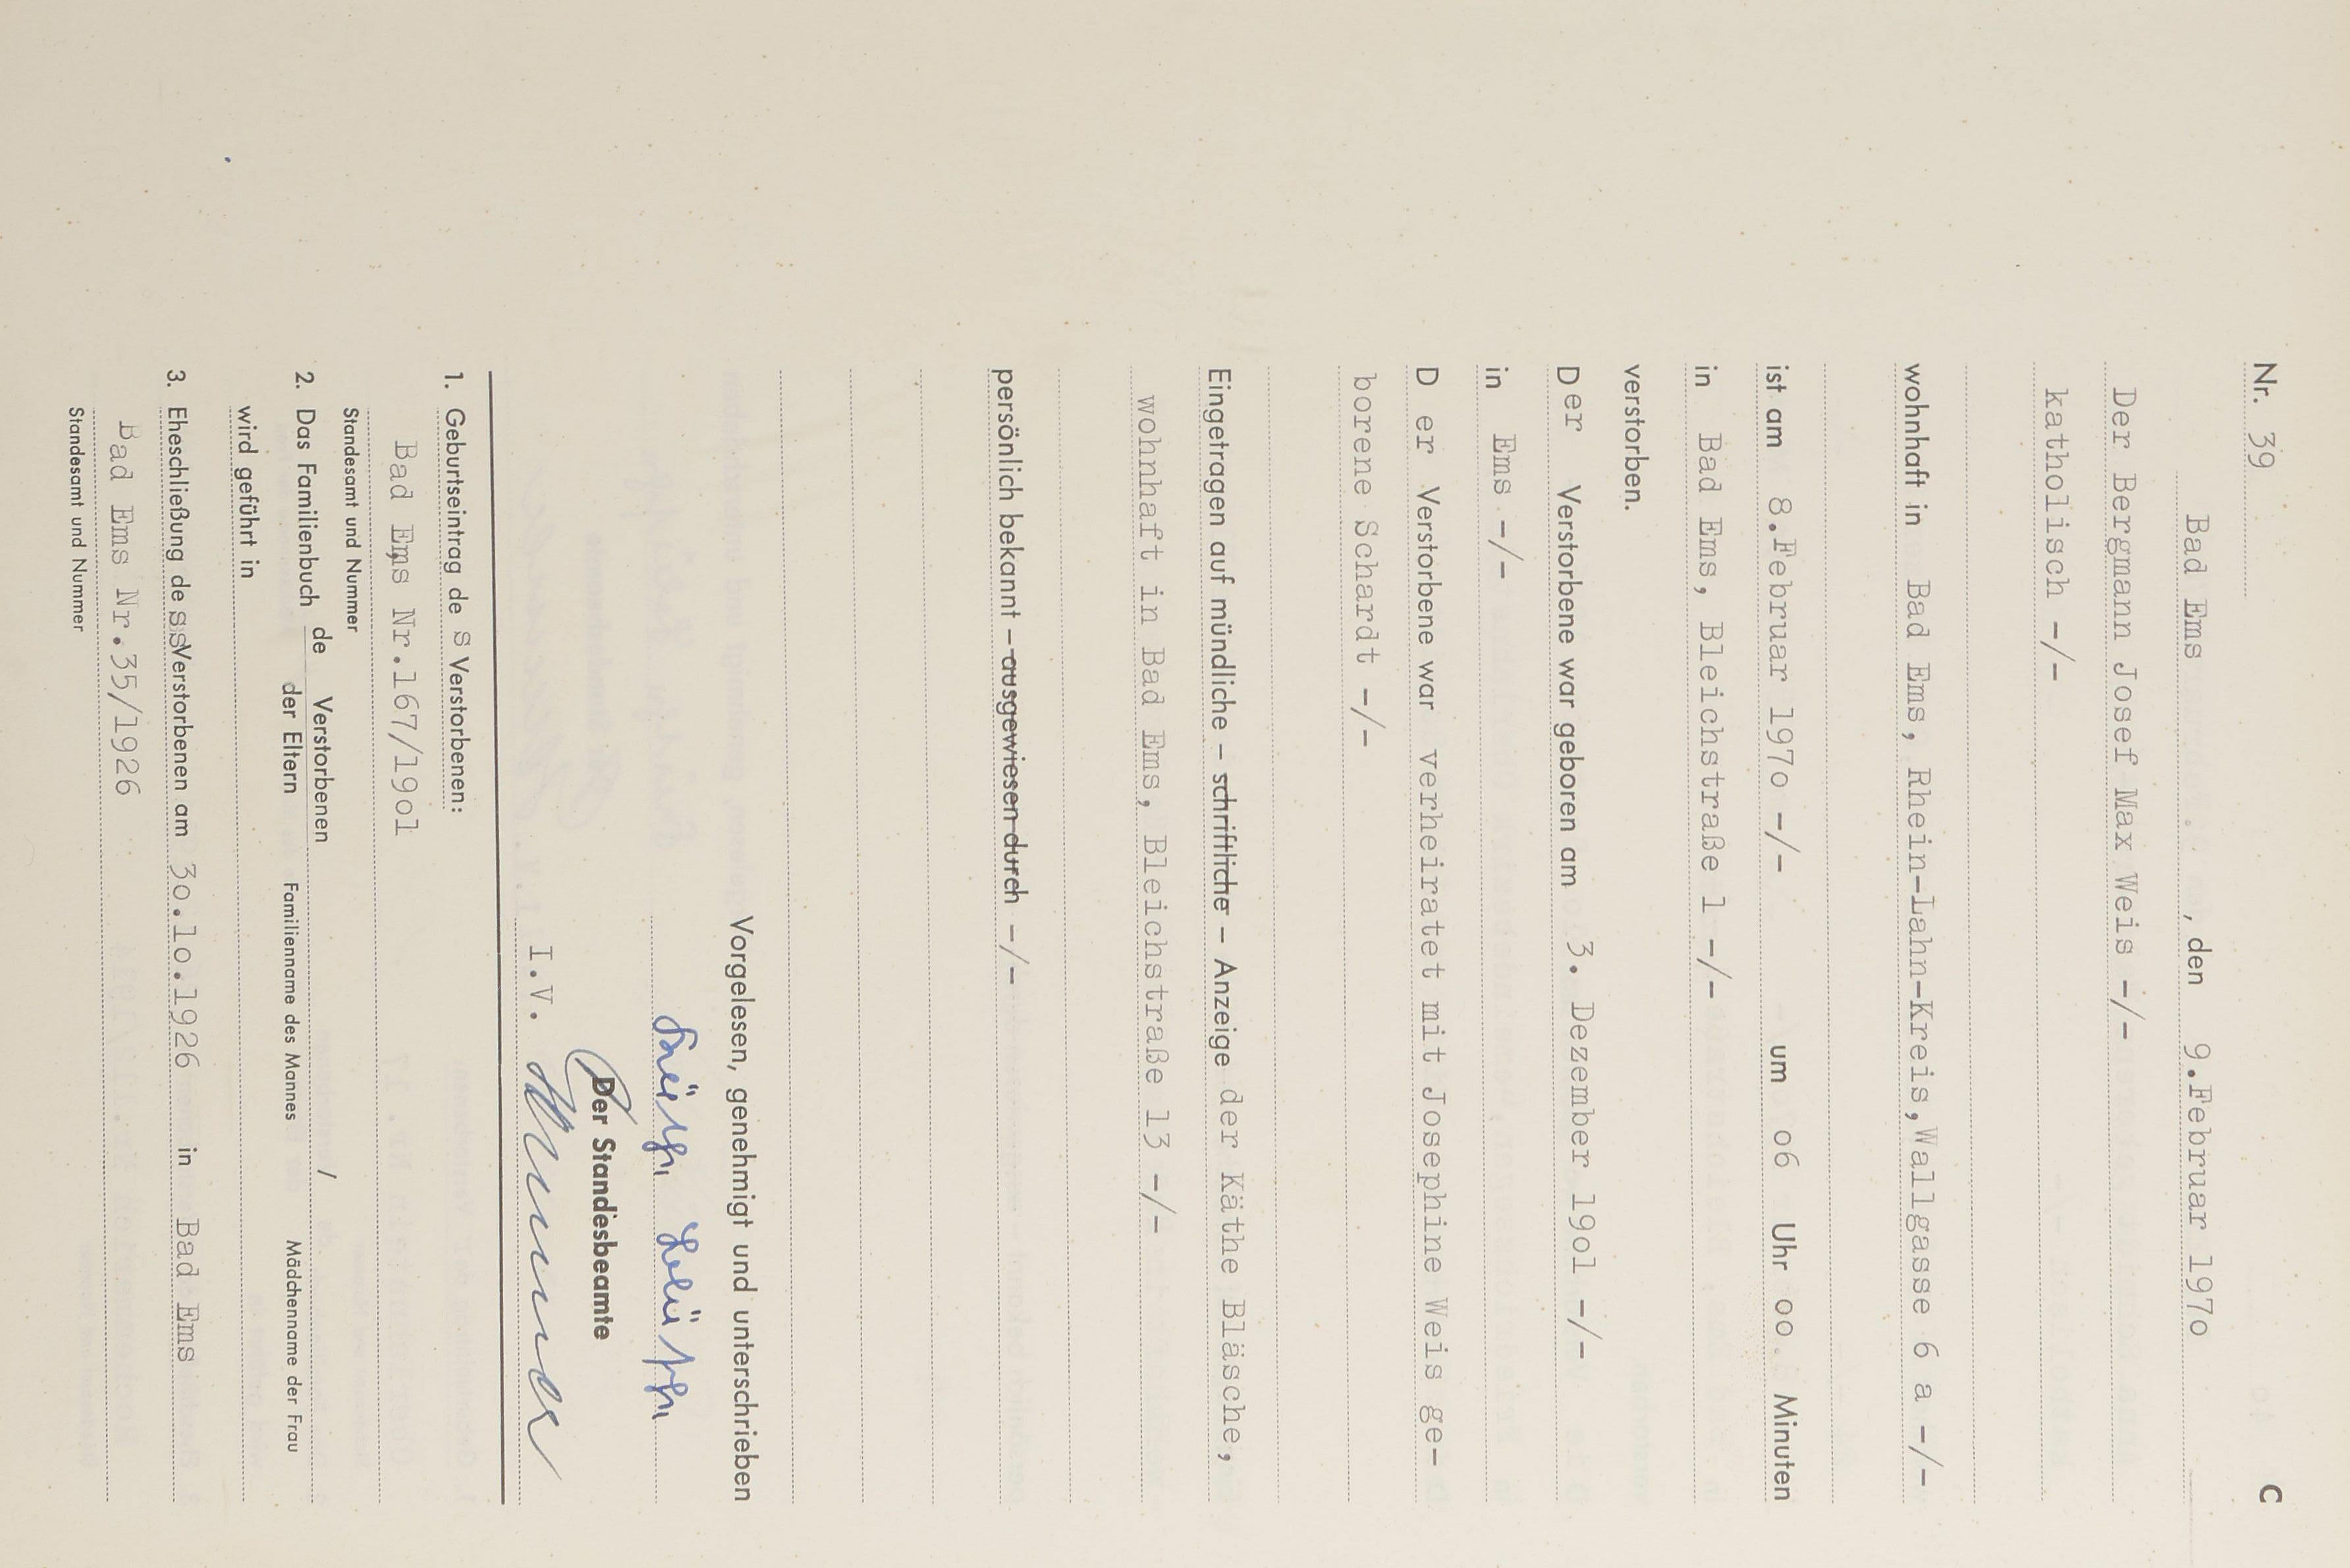 Nr. 39 C
Bad Ems , den 9.Februar 197o
Der Bergmann Josef Max Weis -/-
katholisch -/-
wohnhaft in Bad Ems, Rhein-Lahn-Kreis,Wallgasse 6 a -/-
ist am 8.Februar 197o -/- um o6 Uhr oo Minuten
in Bad Ems, Bleichstraße 1 -/-
verstorben.
Der Verstorbene war geboren am 3. Dezember 19o1 -/-
in Ems -/-
D er Verstorbene war verheiratet mit Josephine Weis ge-
borene Schardt -/-
Eingetragen auf mündliche – schriftliche – Anzeige der Käthe Bläsche,
wohnhaft in Bad Ems, Bleichstraße 13 -/-
persönlich bekannt – ausgewiesen durch -/-
Vorgelesen, genehmigt und unterschrieben
Der Standesbeamte
I.V.
1. Geburtseintrag de s Verstorbenen:
Bad Ems Nr.167/19o1
Standesamt und Nummer
2. Das Familienbuch de Verstorbenen / der Eltern
Familienname des Mannes Mädchenname der Frau
wird geführt in
3. Eheschließung de ssVerstorbenen am 3o.1o.1926 in Bad Ems
Bad Ems Nr.35/1926
Standesamt und Nummer